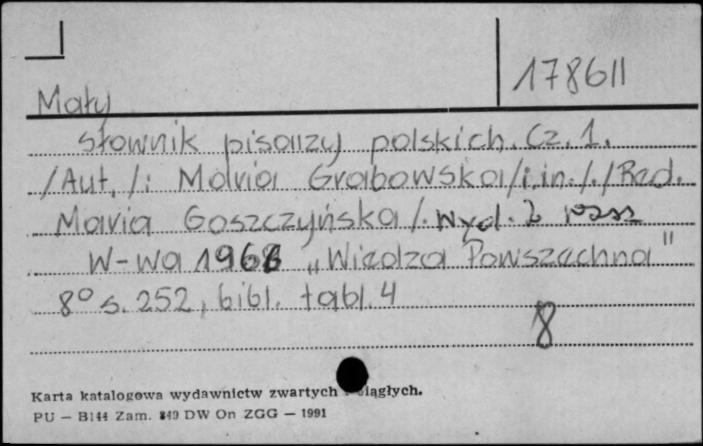 178611
Mały
słownik pisarzy polskich. Cz. 1.
/Aut./: Maria Grabowska /i in./. /Red.
Maria Goszczyńska/. Wyd. 2
W-wa 1968 „Wiedza Powszechna"
8° s. 252, bibl. tabl. 4
8
Karta katalogowa wydawnictw zwartych i ciągłych.
PU — B144 Zam. 849 DW On ZGG — 1991